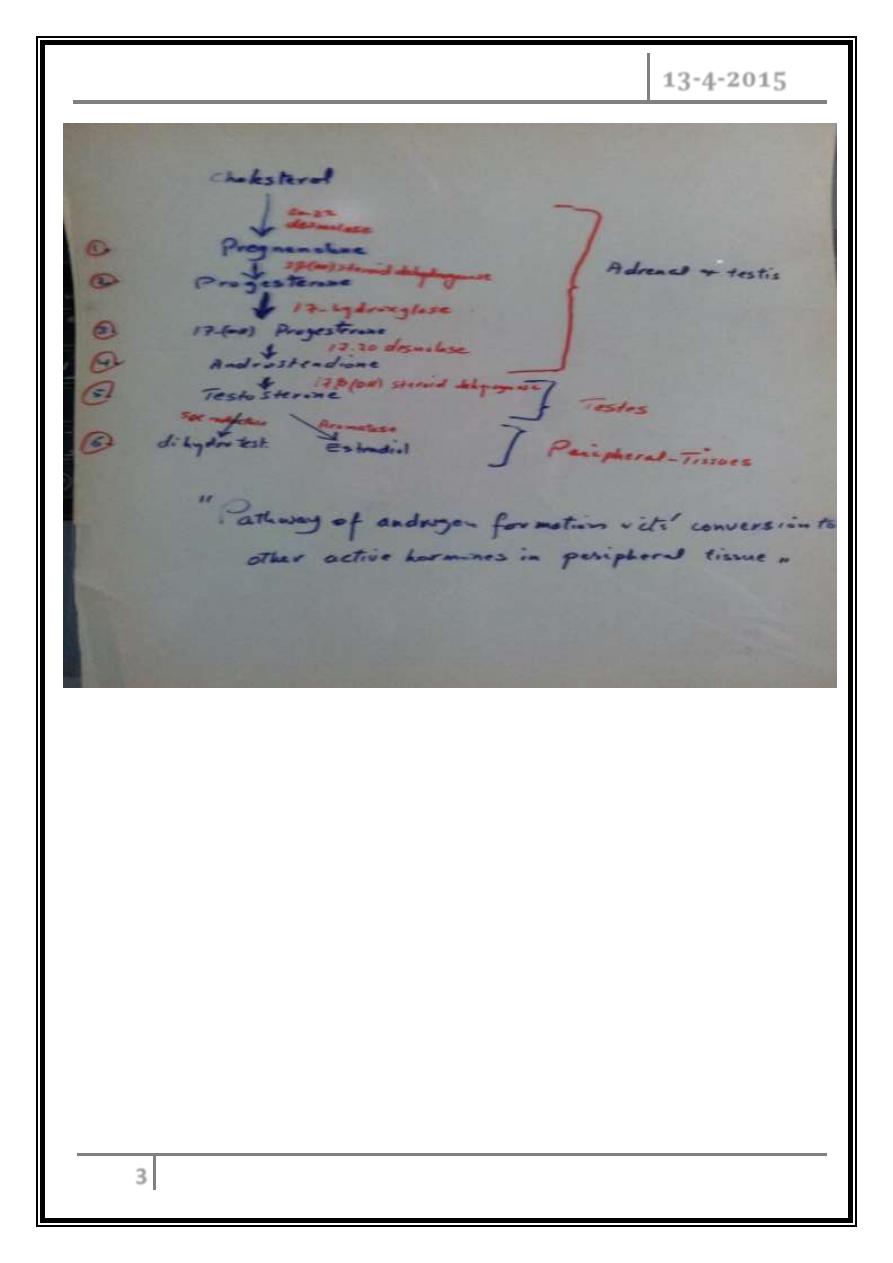 13-4-2015
Cholesterol
20-22
desmolase
1 Pregnenolone
3β(OH) steroid dehydrogenase
2 Progesterone
17-hydroxylase
3 17-(OH) Progesterone
17.20 desmolase
4 Androstendione
Adrenal + testis
17β(OH) steroid
5 Testosterone
Testes
5α Aromatase
6 dihydrotest. Estradiol
Peripheral-Tissues
"Pathway of androgen formation & its' conversion to
other active hormines in peripheral tissue "
3